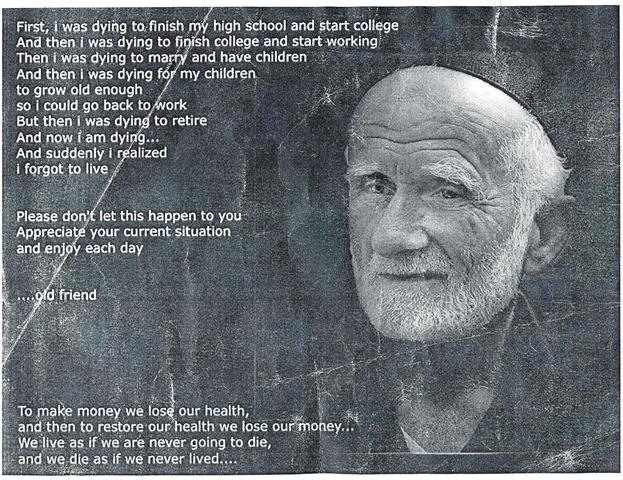 First, i was dying to finish my high school and start college
And then i was dying to finish college and start working
Then i was dying to marry and have children
And then i was dying for my children
to grow old enough
so i could go back to work
But then i was dying to retire
And now i am dying...
And suddenly i realized
i forgot to live
Please don't let this happen to you
Appreciate your current situation
and enjoy each day
....old friend
To make money we lose our health,
and then to restore our health we lose our money...
We live as if we are never going to die,
and we die as if we never lived....